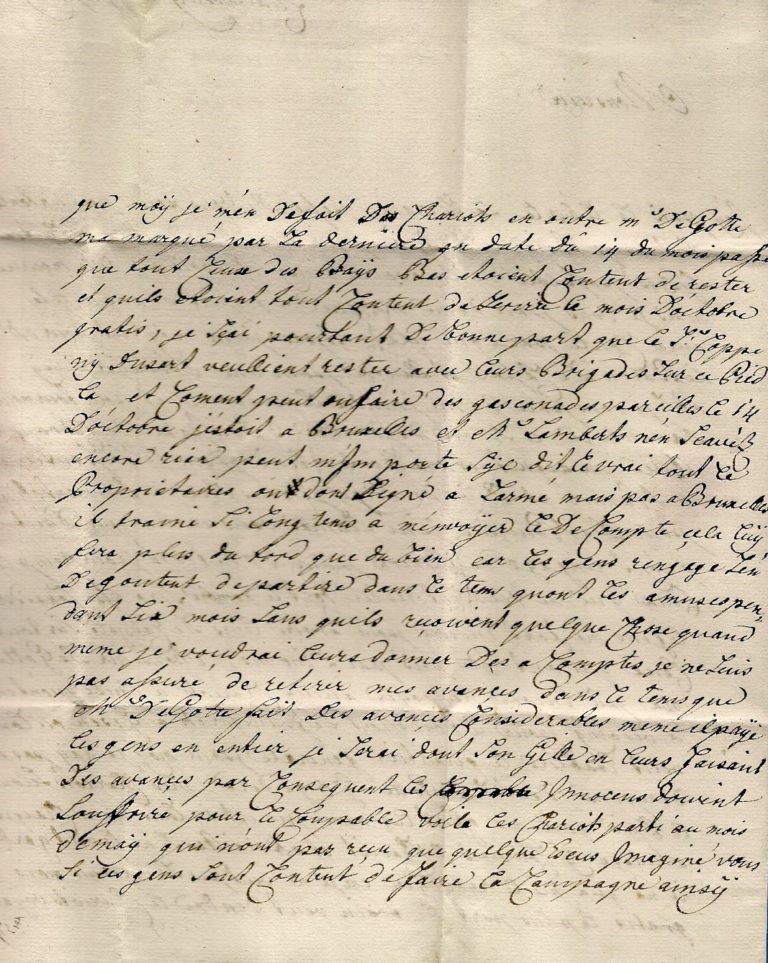 que moÿ je m'en Defait Des Chariots en outre mr. De Gotte
ma marqué par La derniere en date du 14 du mois passe
que tout Ceux des Païs Bas etoient Content de rester
et quils etoient tout Content de Servire le mois D'octobre
gratis, je Scai pourtant De bonne part que le Sr. Coppe
nÿ Dusart veullient rester avec leurs Brigades Sur ce Pied
la et Coment peut on faire des gasconades pareilles le 14
D'octobre j'estoit a Bruxelles et Mr. Lamberts n'en Scavé
encore rien peut m'importe Sÿ je dit le vrai tout le
Proprietaires ont dont Signé a L'armé mais pas a Bruxelles
il traine Si Long tems a m'envoÿer le De Compte, cela luÿ
fera plus du tord que du bien car les gens rengagé S'en
Degoutent de partire dans le tems quont les amuse pen,
dant Six mois Sans quils reçoivent quelque Chose quand
meme je voudrai leurs donner Des a Comptes je ne Suis
pas assuré de retirer mes avances dans le tems que
Mr. De Gotte fait Des avances Considerables meme il paÿe
les gens en entier je Serai dont Son Gille en leurs faisant
Des avances par Consequent les Innocens doivent
Souffrire pour le Coupable voila les Chariots parti au mois
de maÿ qui n'ont pas reçu que quelque Escus Imaginé vous
Si ces gens Sont Content de faire la Campagne ainsÿ